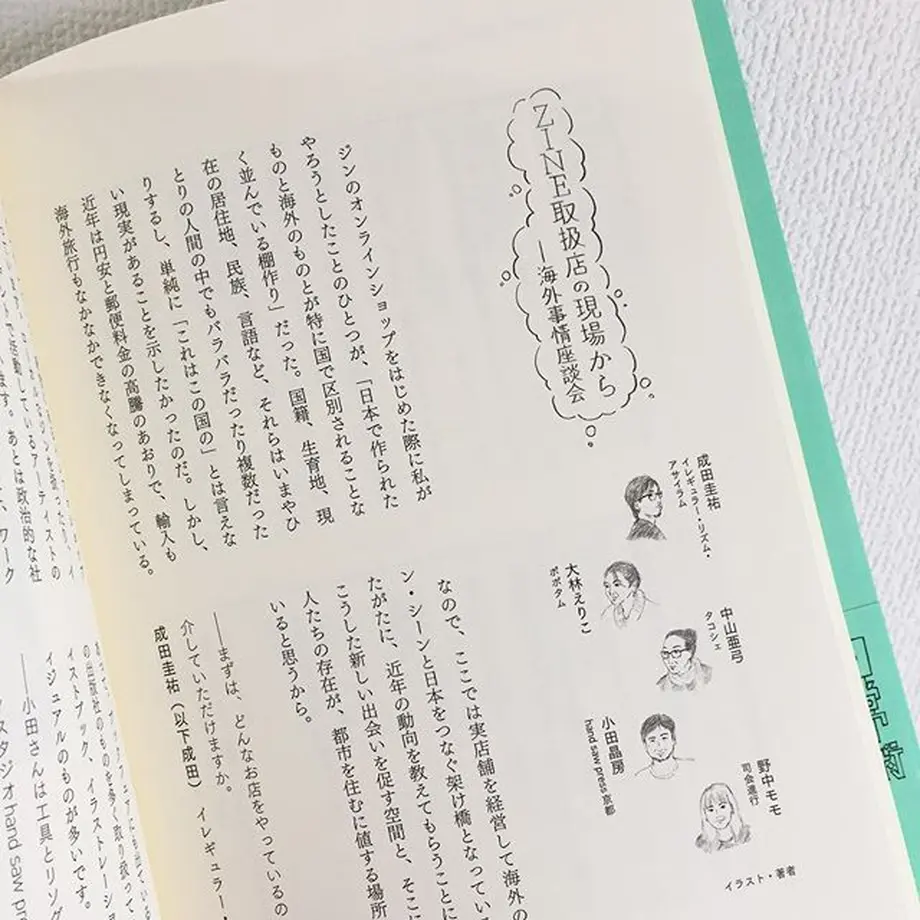 ZINE取扱店の現場から
―海外事情座談会
成田圭祐
イレギュラー・リズム・
アサイラム
大林えりこ
ポポタム
中山亜弓
タコシェ
小田晶房
hand saw press 京都
野中モモ
司会進行
イラスト・著者
ジンのオンラインショップをはじめた際に私が
やろうとしたことのひとつが、「日本で作られた
ものと海外のものとが特に国で区別されることな
く並んでいる棚作り」だった。国籍、生育地、現
在の居住地、民族、言語など、それらはいまやひ
とりの人間の中でもバラバラだったり複数だった
りするし、単純に「これはこの国の」とは言えな
い現実があることを示したかったのだ。しかし、
近年は円安と郵便料金の高騰のあおりで、輸入も
海外旅行もなかなかできなくなってしまっている。
なので、ここでは実店舗を経営して海外の
ン・シーンと日本をつなぐ架け橋となってい
たがたに、近年の動向を教えてもらうことに
こうした新しい出会いを促す空間と、そこに
人たちの存在が、都市を住むに値する場所
いると思うから。
――まずは、どんなお店をやっているの
介していただけますか。
成田圭祐（以下成田） イレギュラー・
で活動しているアーティストの
います。あとは政治的な社
ワーク
の出版社のものを多く取り扱って
イストブック、イラストレーショ
イジュアルのものが多いです。
――小田さんは工具とリソグ
スタジオhand saw pr